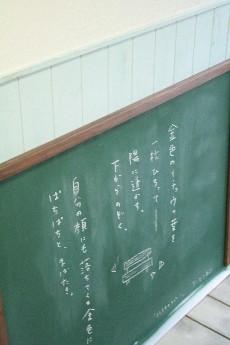 金色のイチョウの葉を
一枚ひろって
陽に透かす。
下からのぞく。
自分の顔にも落ちてくる金色に
ぱちぱちと、まばたき。